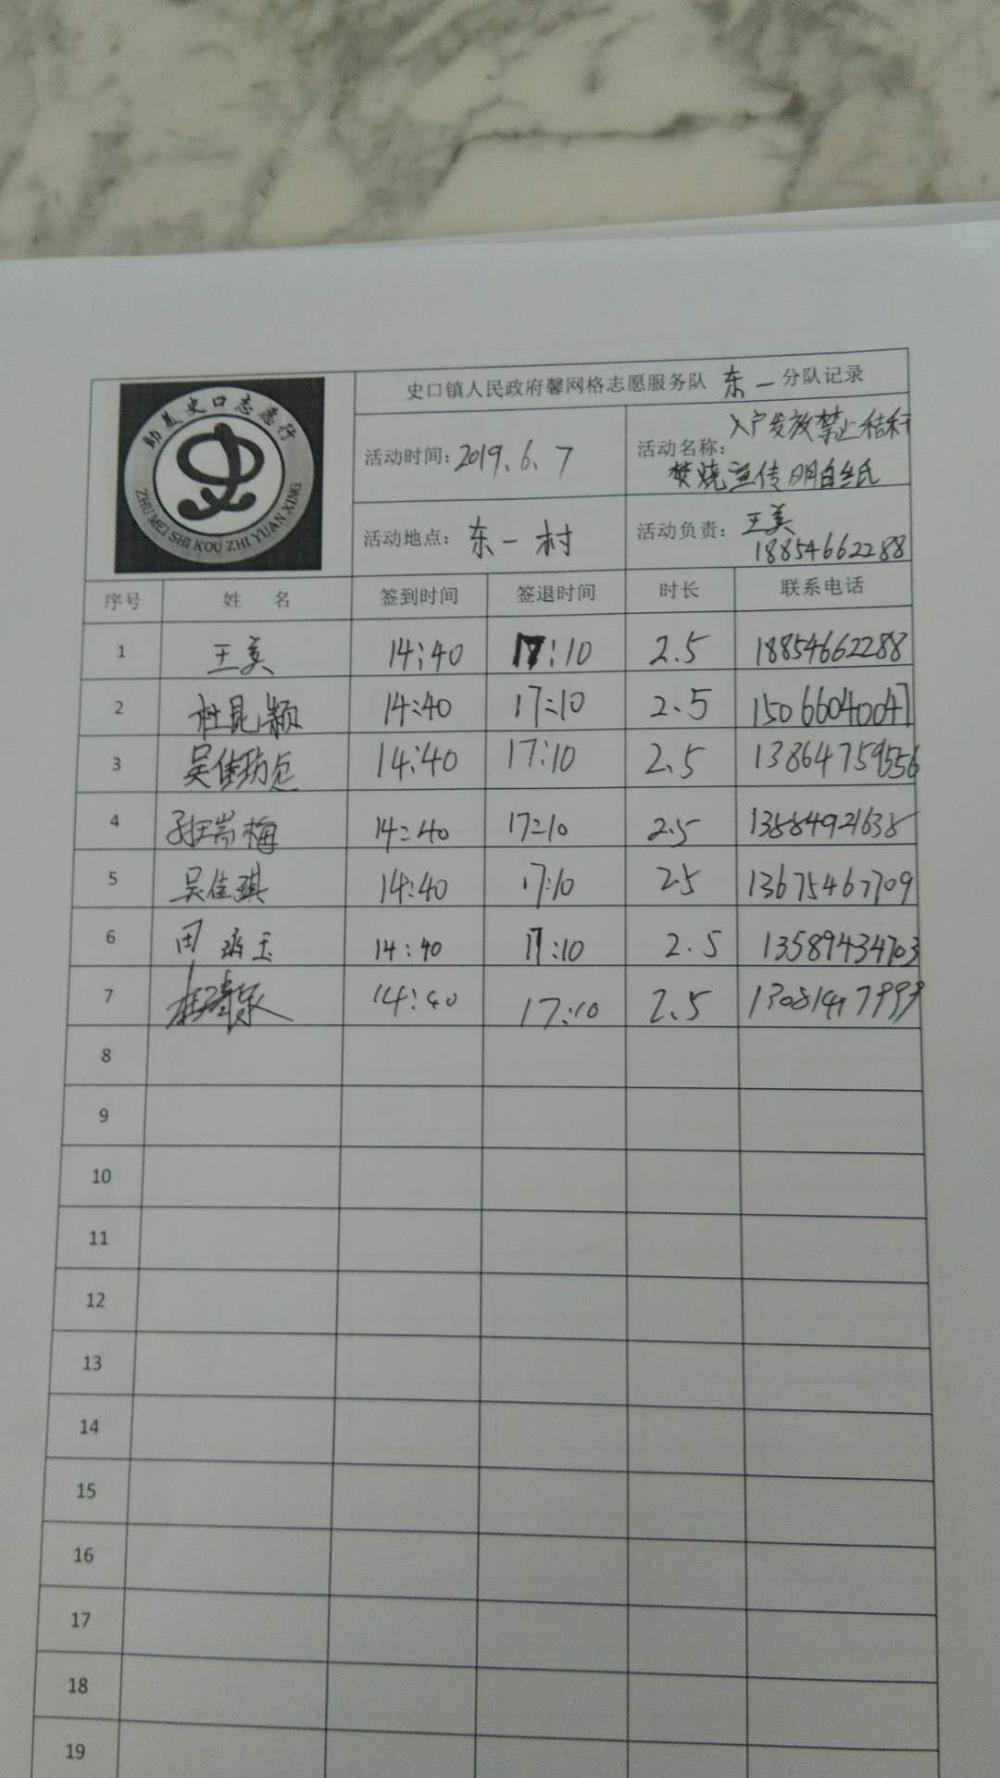 助美史口志愿行
ZHU MEI SHI KOU ZHI YUAN XING
史口镇人民政府馨网格志愿服务队 东一 分队记录
活动时间: 2019.6.7
活动名称: 入户发放禁止秸秆
焚烧宣传明白纸
活动地点: 东一村
活动负责: 王美
18854662288
序号 姓 名 签到时间 签退时间 时长 联系电话
1 王美 14:40 17:10 2.5 18854662288
2 杜昆颖 14:40 17:10 2.5 15066040047
3 吴佳 14:40 17:10 2.5 13864759556
4 14:40 17:10 2.5
5 吴佳琪 14:40 17:10 2.5 13675467709
6 田 玉 14:40 17:10 2.5 13589434703
7 14:40 17:10 2.5
8
9
10
11
12
13
14
15
16
17
18
19